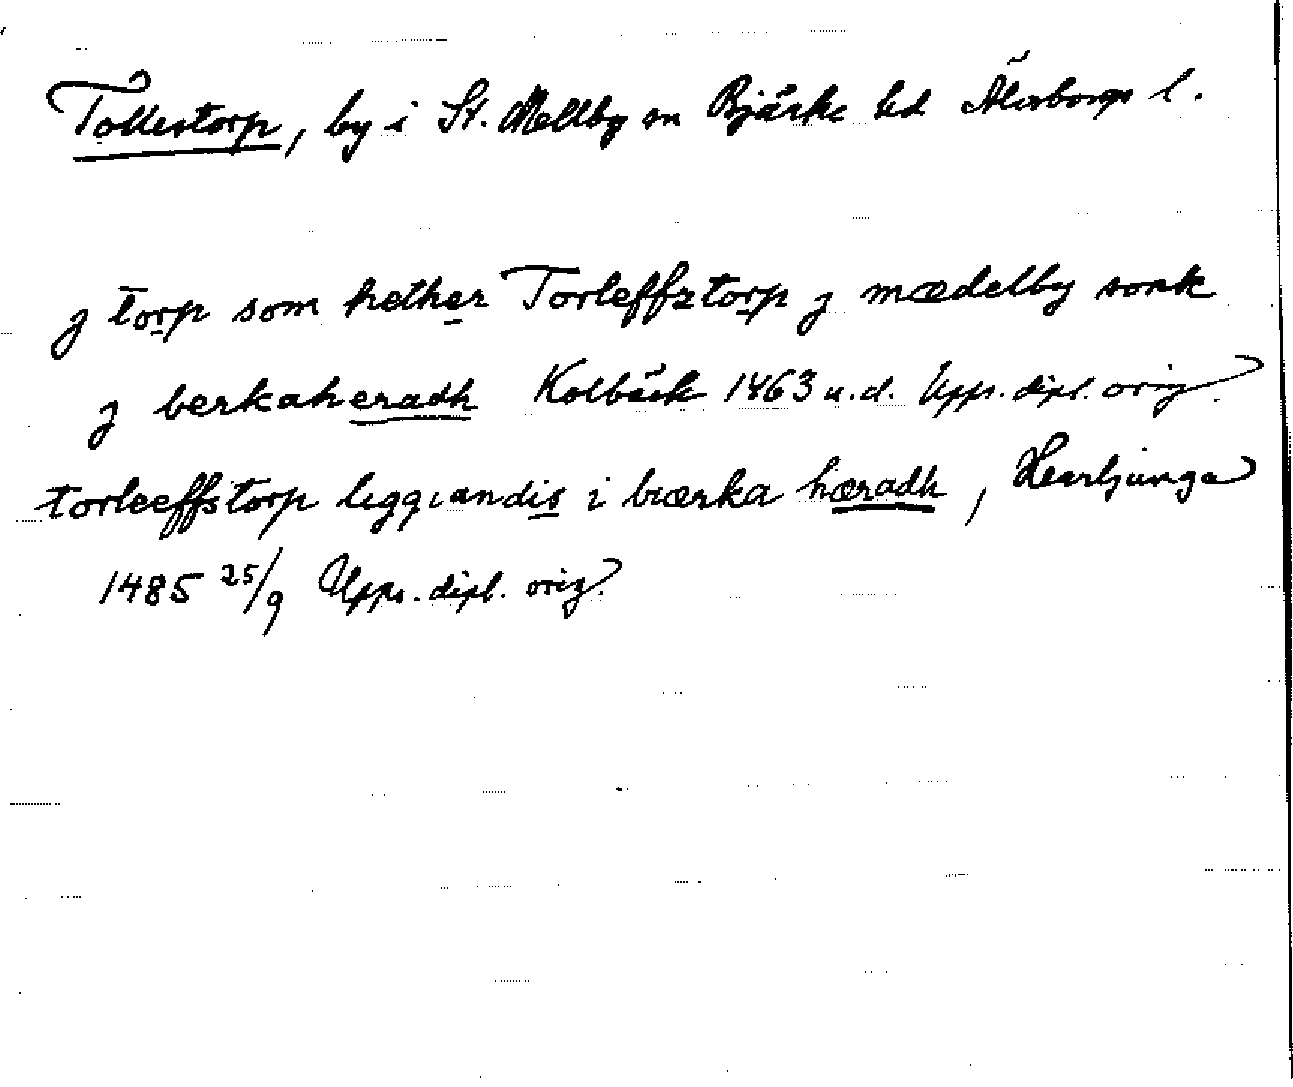 Tollestorp, by i St. Mellby sn Bjärke hd Älvsborgs l.
j torp som hether Torleffztorp j mædelby sonk
j berkaheradh Kolbäck 1463 u.d. Upps. dipl. orig.
torleeffstorp liggiandis i biærka hæradh, Herrljunga
1485 25/9 Upps. dipl. orig.